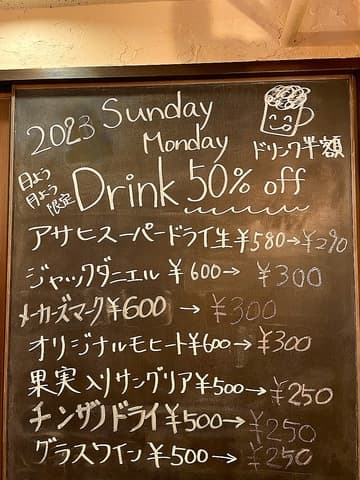 2023 Sunday
Monday
ドリンク半額
日よう
月よう
限定
Drink 50% off
アサヒスーパードライ生 ¥580→¥290
ジャックダニエル ¥600→ ¥300
メーカーズマーク¥600 → ¥300
オリジナルモヒート¥600→ ¥300
果実入りサングリア¥500→¥250
チンザノドライ¥500→¥250
グラスワイン ¥500→¥250